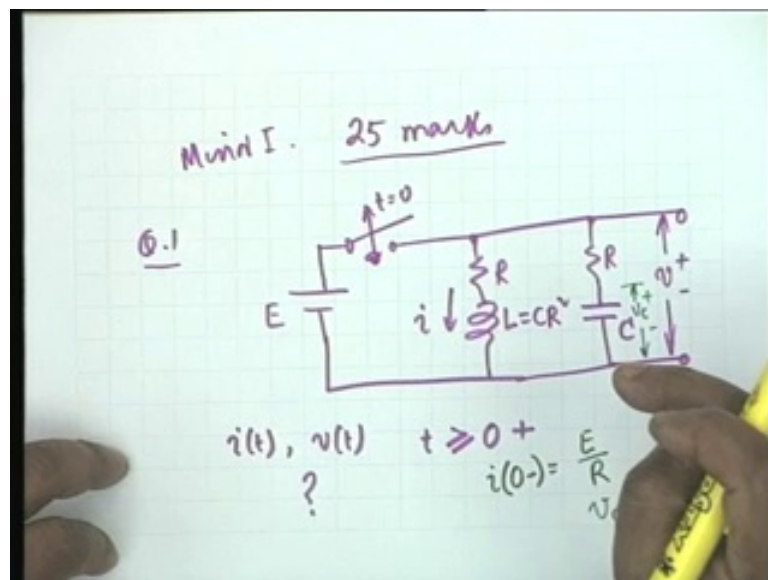 Minor I. 25 marks
Q.1
t=0
E
i
R
L=CR²
R
C
+
v_c
-
+
v
-
i(t), v(t) t ≥ 0+
?
i(0-) = E/R
v